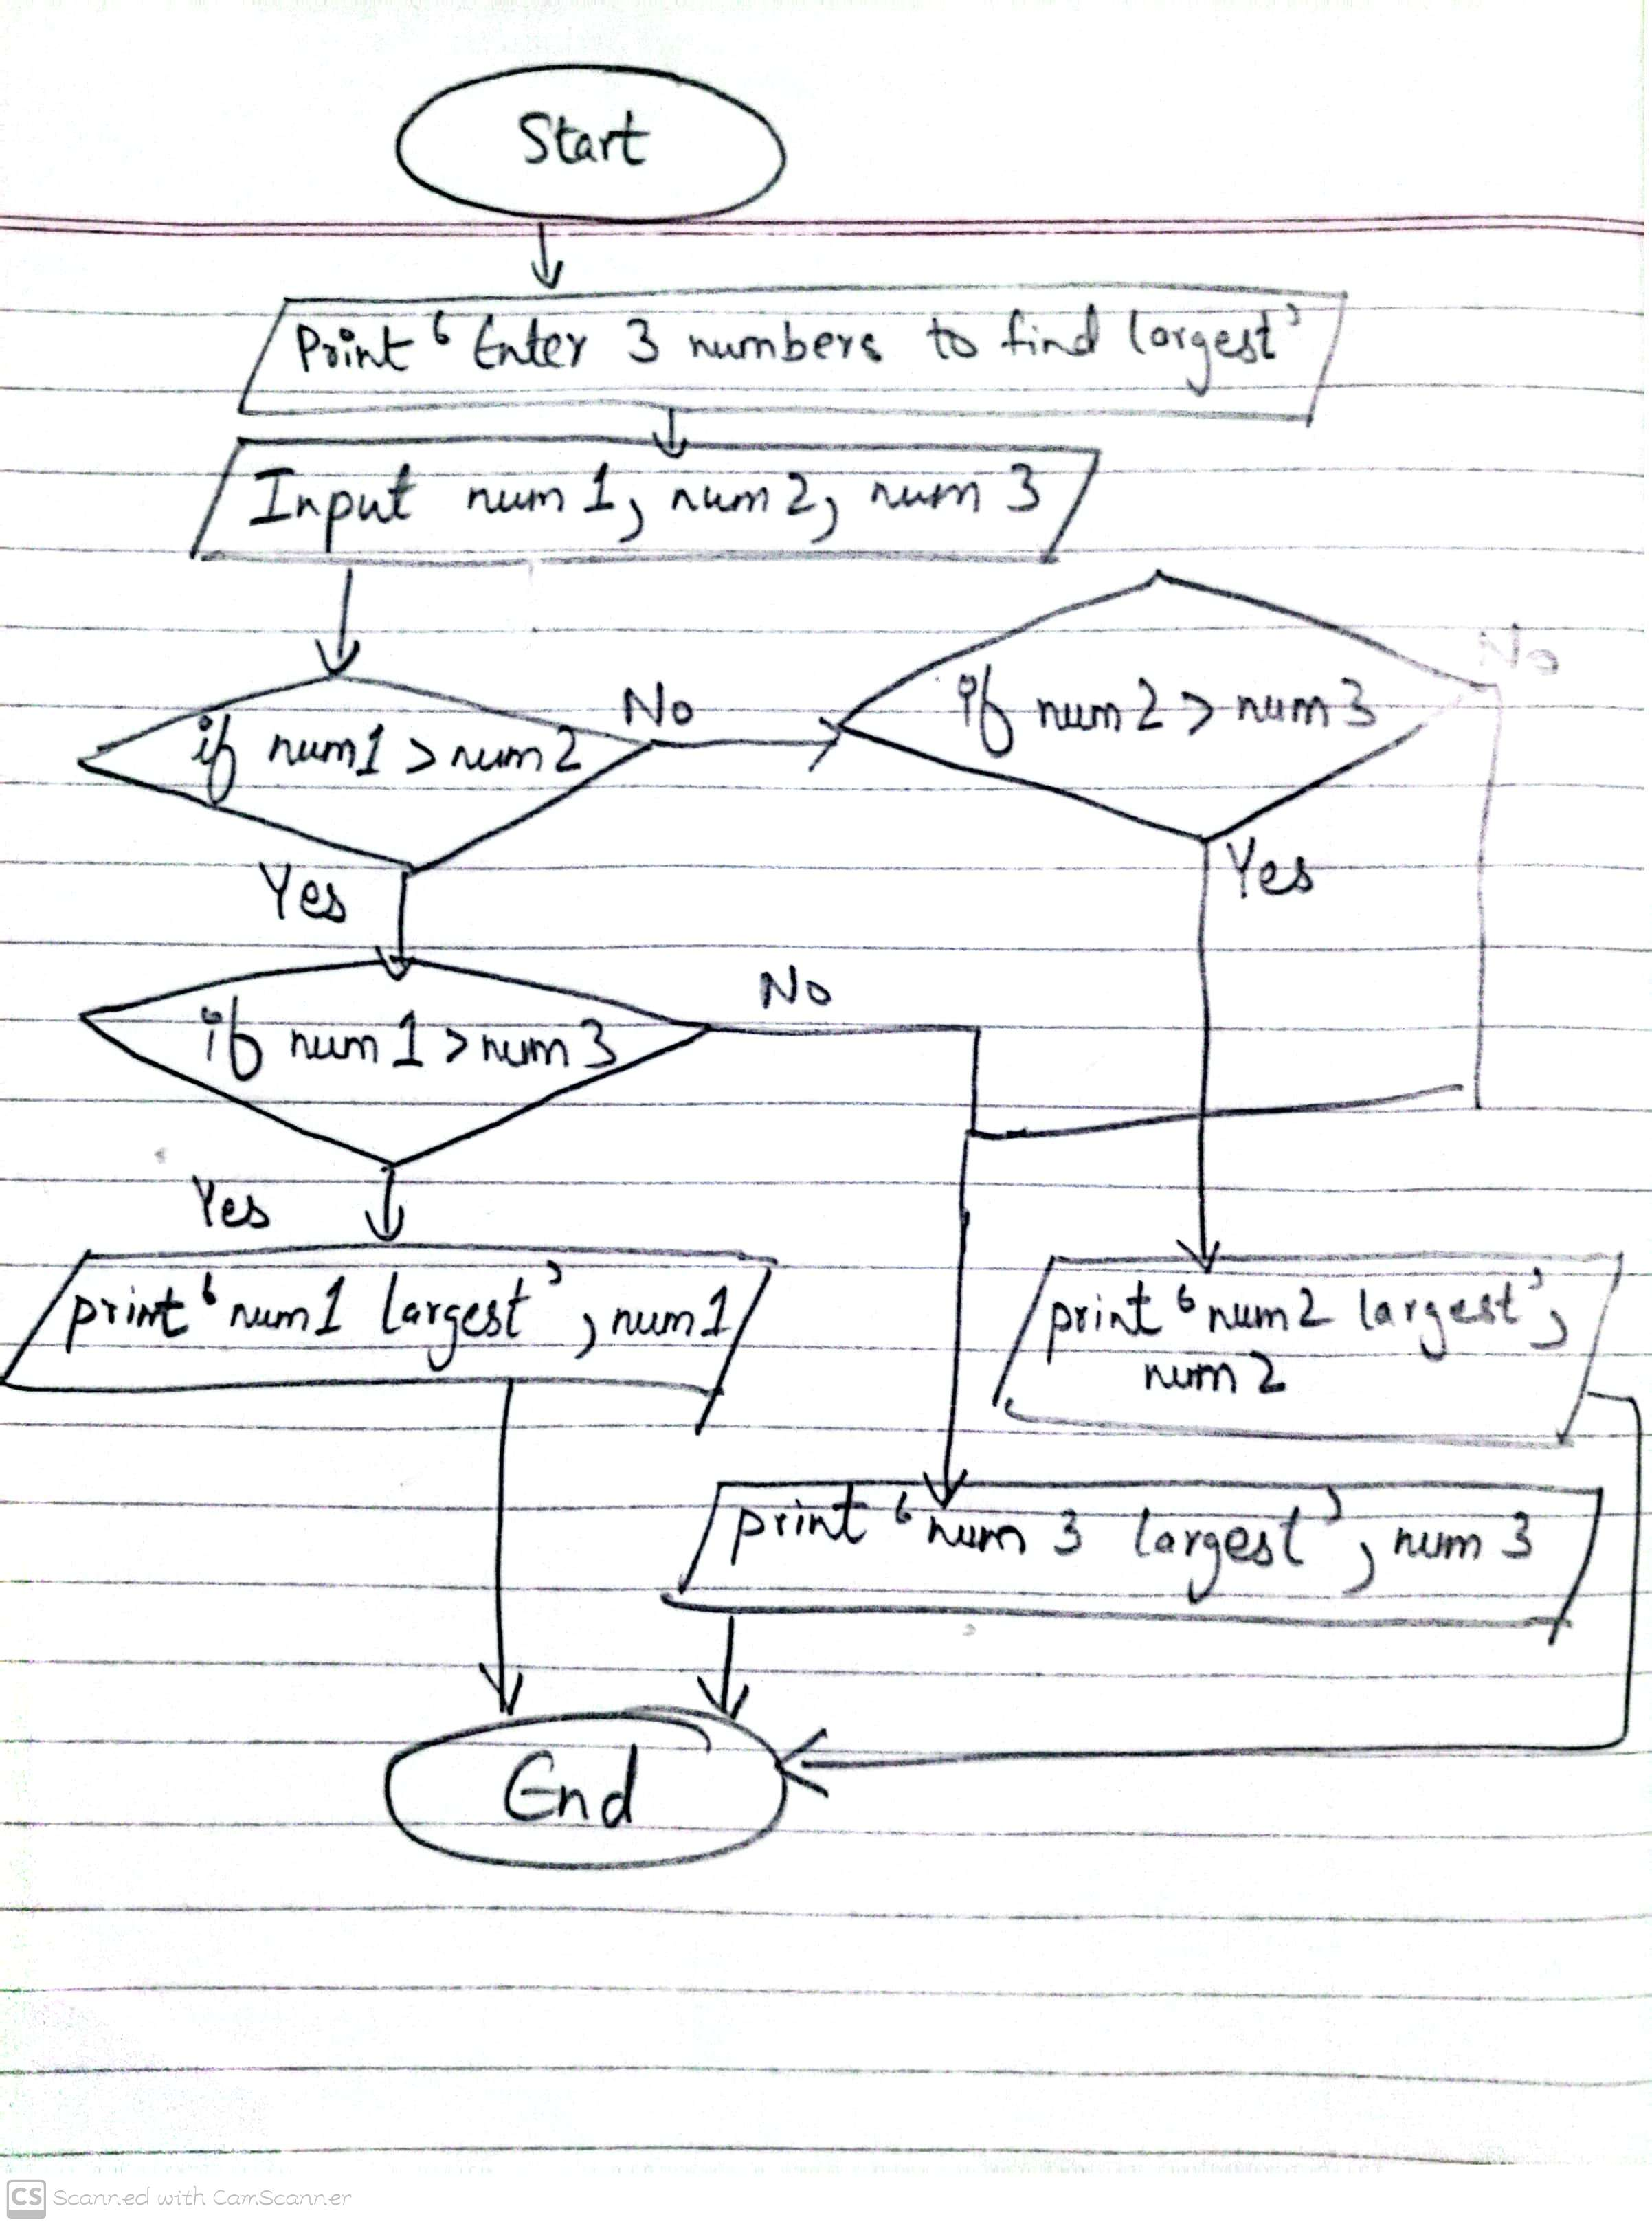 Start
Print ‘Enter 3 numbers to find largest’
Input num1, num2, num3
if num1 > num2
No
if num2 > num3
No
Yes
Yes
if num1 > num3
No
Yes
print ‘num1 largest’, num1
print ‘num2 largest’,
num2
print ‘num 3 largest’, num 3
End
CS Scanned with CamScanner